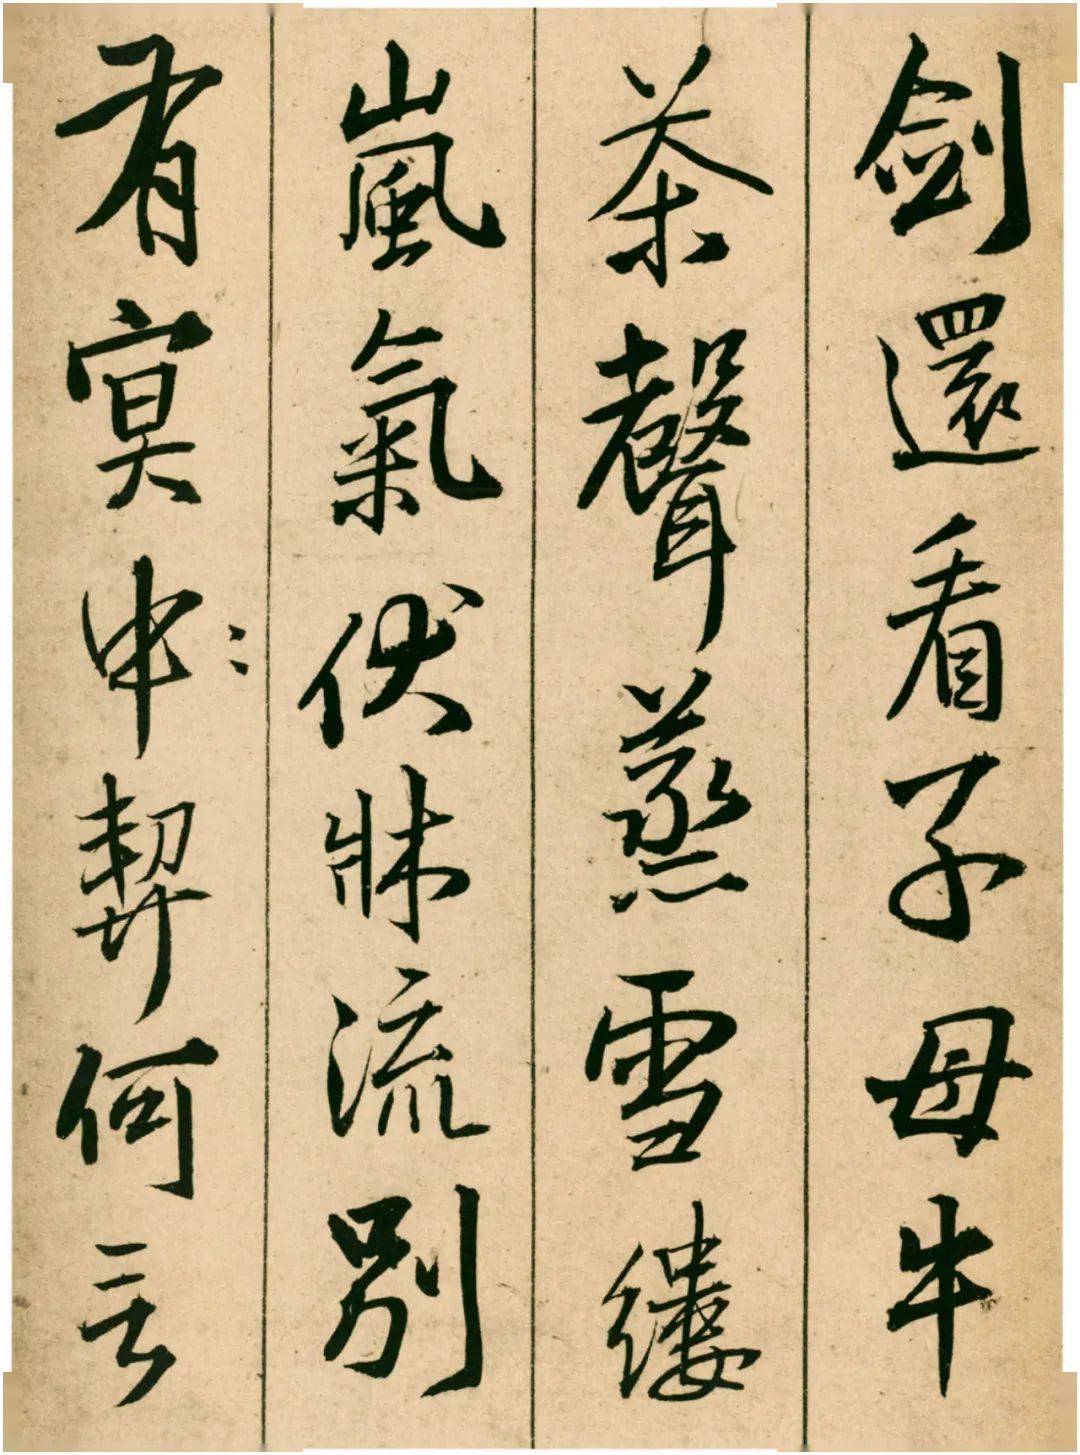 劍還看子母牛
茶聲蒸雪縷
嵐氣伏牀流別
有冥申契何言